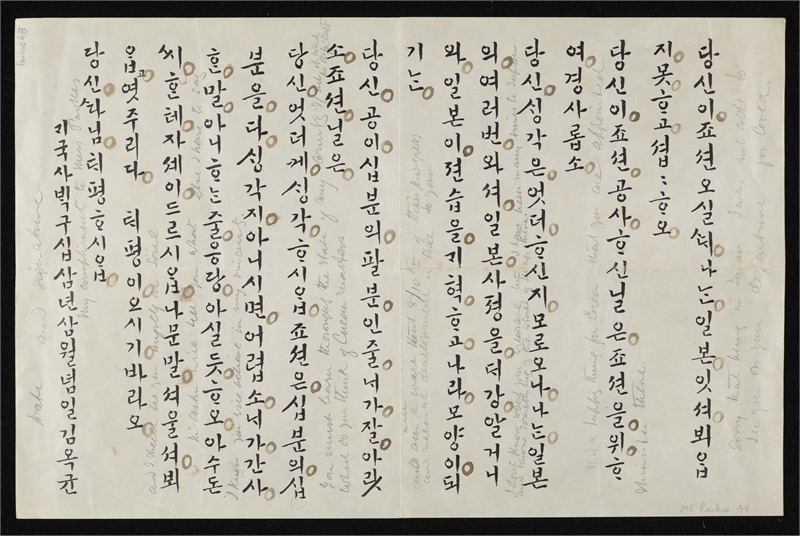 당신이죠션오실ᄯᅢ나는일본잇셔뵈ᄋᆞᆸ
지못ᄒᆞ고셥〻ᄒᆞ오
당신이죠션공사ᄒᆞ신닐은죠션을위ᄒᆞ
여경사롭소
당신ᄉᆡᆼ각은엇더ᄒᆞ신지모로오나나는일본
의여러번와셔일본사졍을더강알거니
와일본이젼습을ᄀᆡ혁ᄒᆞ고나라모양이되
기는
당신공이십분의팔분인줄ᄂᆡ가잘아랏
소죠션닐은
당신엇더케ᄉᆡᆼ각ᄒᆞ시ᄋᆞᆸ죠션은십분의십
분을다ᄉᆡᆼ각지아니시면어렵소ᄂᆡ가간사
ᄒᆞᆫ말아니ᄒᆞ는줄응당아실듯ᄒᆞ오아수돈
씨ᄒᆞᆫ테자셰이드르시ᄋᆞᆸ나문말셔울셔뵈
ᄋᆞᆸ고엿주리다 ᄐᆡ평이오시기바라오
당신마님ᄐᆡ평ᄒᆞ시ᄋᆞᆸ
ᄀᆡ국사ᄇᆡᆨ구십삼년삼월념일김옥균
Sorry that being in Japan I was not able to
see you on your departure for Corea
It is a happy thing for Corea that you are appointed
Minister there.
and am aware that 8/10 of their progress
and national development is due to you
What do you think of Corean matters
My compliments to Miss Parkes
Date and signature
MS Parkes 49